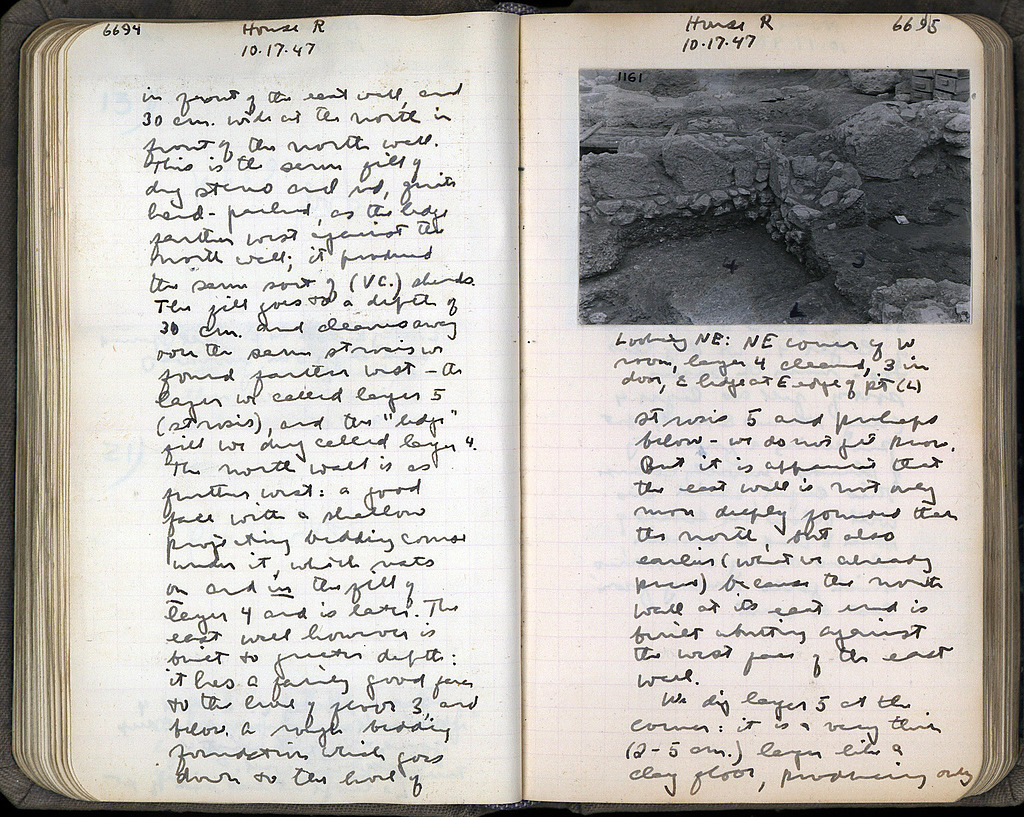 6694
House R
10·17·47
in front of the east wall, and
30 cm. wide at the north in
front of the north wall.
This is the same fill of
dug stereo and red, quite
hard-packed, as the ledge
farther west against the
north wall; it produced
the same sort of (VC.) sherds.
The fill goes to a depth of
30 cm. and cleaves away
over the same strosis we
found farther west - the
layer we called layer 5
(strosis), and the "ledge"
fill we dug called layer 4.
The north wall is as
further west: a good
face with a shallow
projecting bedding course
under it, which rests
on and in the fill of
layer 4 and is later. The
east wall however is
built to greater depth:
it has a fairly good face
to the level of floor 3, and
below a rough bedding
foundation which goes
down to the level of
House R
10·17·47
6695
1161
Looking NE: NE corner of W
room, layer 4 cleared, 3 in
door, E ledge at E edge of pit (L)
strosis 5 and perhaps
below - we do not yet know.
But it is apparent that
the east wall is not only
more deeply founded than
the north, but also
earlier (what we already
knew) because the north
wall at its east end is
built abutting against
the west face of the east
wall.
We dig layer 5 at the
corner: it is a very thin
(2-5 cm.) layer like a
clay floor, producing only